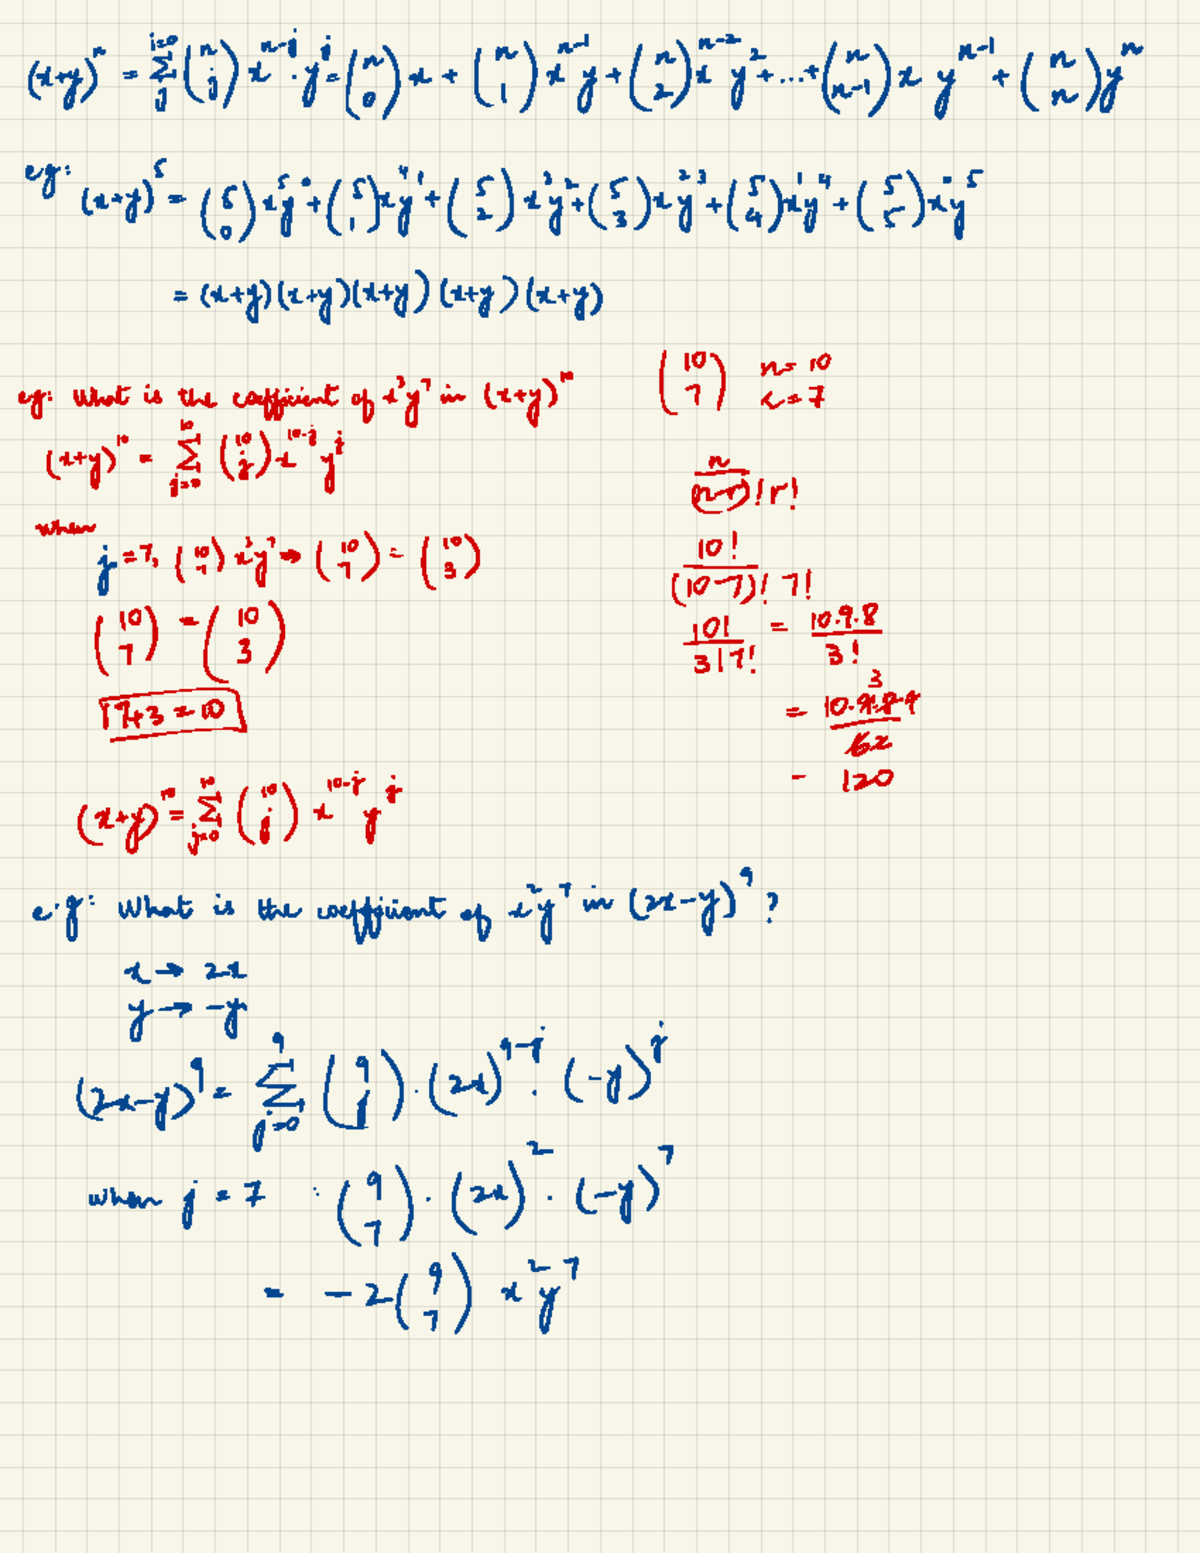 (x+y)^n = Σ_j^{i=0} (n j) x^{n-j} · y^j = (n 0) x + (n 1) x^{n-1} y + (n 2) x^{n-2} y^2 + ... + (n n-1) x y^{n-1} + (n n) y^n
eg: (x+y)^5 = (5 0) x^5 y^0 + (5 1) x^4 y^1 + (5 2) x^3 y^2 + (5 3) x^2 y^3 + (5 4) x^1 y^4 + (5 5) x^0 y^5
= (x+y)(x+y)(x+y)(x+y)(x+y)
eg: What is the coefficient of x^3 y^7 in (x+y)^10
(x+y)^10 = Σ_{j=0}^{10} (10 j) x^{10-j} y^j
when
j = 7, (10 7) x^3 y^7 → (10 7) = (10 3)
(10 7) = (10 3)
7+3 = 10
(x+y)^10 = Σ_{j=0}^{10} (10 j) x^{10-j} y^j
(10 7) n = 10
r = 7
n / (n-r)! r!
10! / (10-7)! 7!
10! / 3! 7! = 10.9.8 / 3!
= 10.9.8 3 4 / 6 2
- 120
e.g: What is the coefficient of x^2 y^7 in (2x-y)^9 ?
x → 2x
y → -y
(2x-y)^9 = Σ_{j=0}^{9} (9 j) · (2x)^{9-j} · (-y)^j
when j = 7 : (9 7) · (2x)^2 · (-y)^7
= -2 (9 7) x^2 y^7